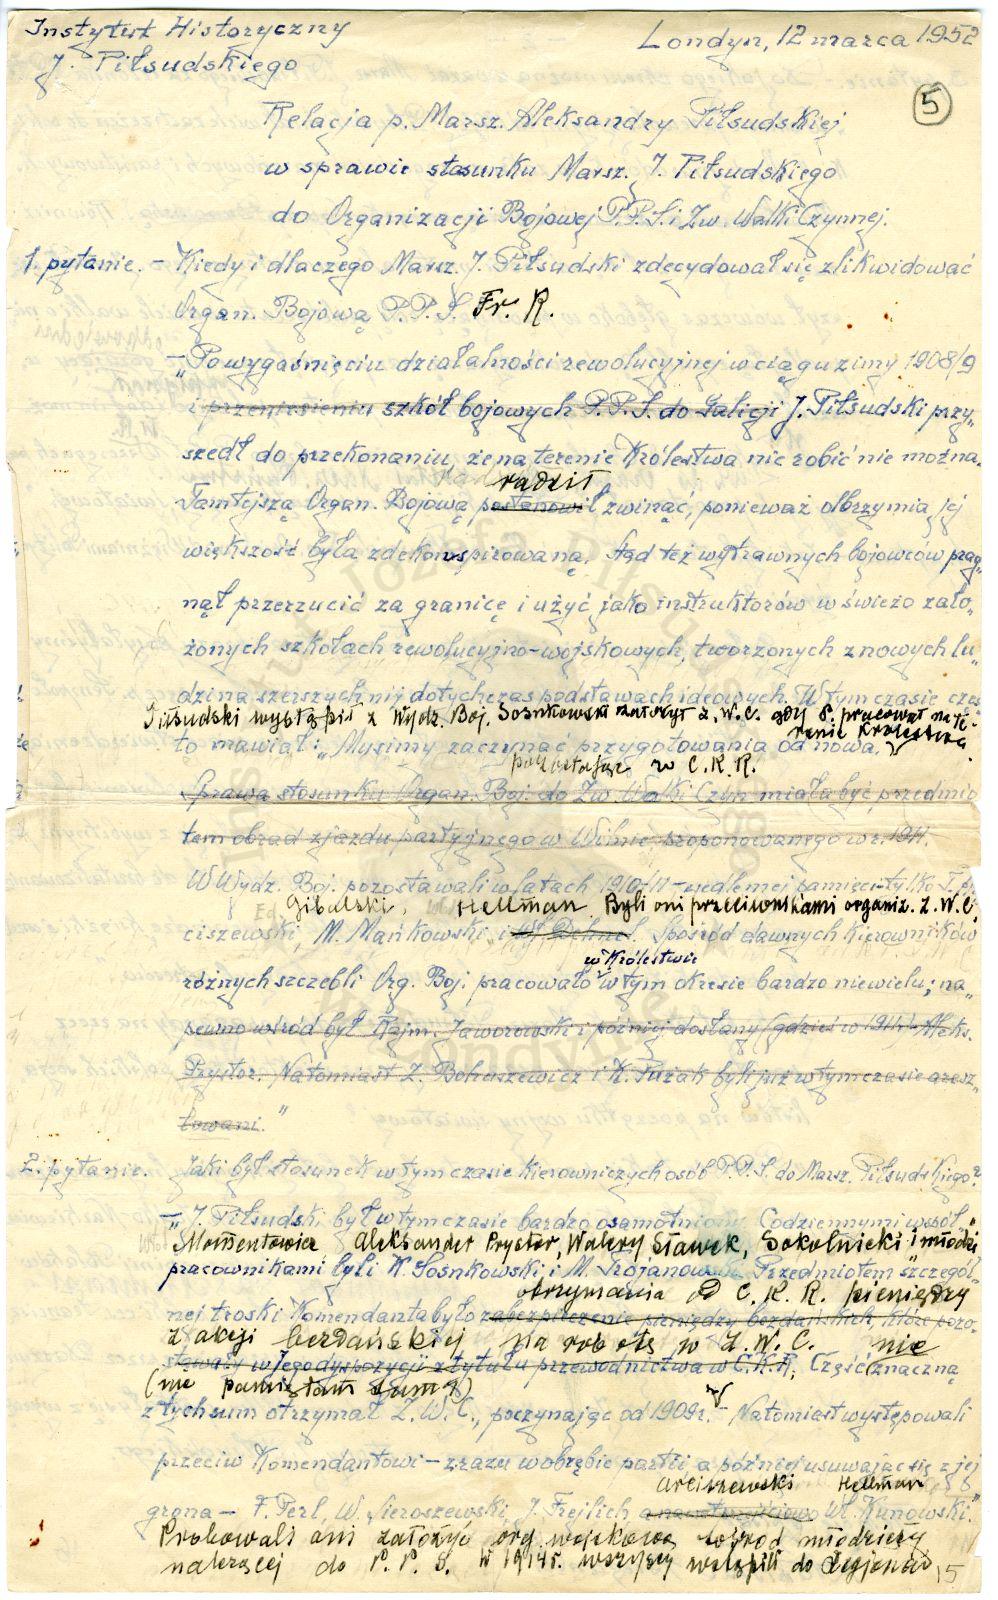 Instytut Historyczny
J. Piłsudskiego
Londyn, 12 marca 1952
5
Relacja p. Marsz. Aleksandry Piłsudskiej
w sprawie stosunku Marsz. J. Piłsudskiego
do Organizacji Bojowej P.P.S. i Zw. Walki Czynnej.
1. pytanie. – Kiedy i dlaczego Marsz. J. Piłsudski zdecydował się zlikwidować
Organ. Bojową P.P.S. Fr. R.
– „Po wygaśnięciu działalności rewolucyjnej w ciągu zimy 1908/9
i przeniesieniu szkół bojowych P.P.S. do Galicji J. Piłsudski przy„
szedł do przekonania, że na terenie Królestwa nic robić nie można.
radził
Tamtejszą Organ. Bojową postanowił zwinąć, ponieważ olbrzymia jej
większość była zdekonspirowaną. Stąd też wytrawnych bojowców prag„
nął przerzucić za granicę i użyć jako instruktorów w świeżo zało„
żonych szkołach rewolucyjno-wojskowych, tworzonych z nowych lu„
dzi na szerszych niż dotychczas podstawach ideowych. W tym czasie częs
Piłsudski wystąpił z Wydz. Boj. Sosnkowski założył Z.W.C. gdy P. pracował na te-
renie Królestwa
to mawiał: „Musimy zaczynać przygotowania od nowa."
pozostając w C.K.R.
Sprawa stosunku Organ. Boj. do Zw. Walki Czyn miała być przedmio
tem obrad zjazdu partyjnego w Wilnie, proponowanego w r. 1911.
W Wydz. Boj. pozostawali w latach 1910/11 – wedle mej pamięci tylko T.
Gibalski, Hellman Byli oni przeciwnikami organiz. Z.W.C.
ciszewski, M. Mańkowski i W. Dehnel. Spośród dawnych kierowników
w Królestwie
różnych szczebli Org. Boj. pracowało w tym okresie bardzo niewielu; na„
pewno wśród był Rajm. Jaworowski i później dosłany (gdzieś w 1911r) Aleks.
Prystor. Natomiast Z. Bohuszewicz i K. Pużak byli już w tym czasie aresz„
towani."
2. pytanie. Jaki był stosunek w tym czasie kierowniczych osób P.P.S. do Marsz. Piłsudskiego?
– „J. Piłsudski był w tym czasie bardzo osamotniony. Codziennymi współ„
Momentowicz Aleksander Prystor, Walery Sławek, Sokolnicki i młodzi
pracownikami byli K. Sosnkowski i M. Trojanowski. Przedmiotem szczegól„
otrzymania od C.K.R. pieniędzy
nej troski Komendanta było zabezpieczenie pieniędzy bezdańskich, które pozo„
z akcji bezdańskiej na robotę w Z.W.C. nie
stawały w Jego dyspozycji z tytułu przewodnictwa w C.K.R. Część znaczną
(nie pamiętam sumy)
z tych sum otrzymał Z.W.C., poczynając od 1909 r. Natomiast występowali
przeciw Komendantowi – zrazu w obrębie partii a później usuwając się z jej
Arciszewski Hellman
grona – F. Perl, W. Sieroszewski, J. Frejlich a Wł. Kunowski."
Próbowali oni założyć org. wojskową wśród młodzieży
należącej do P.P.S. W 1914r. wszyscy wstąpili do Legionów
15